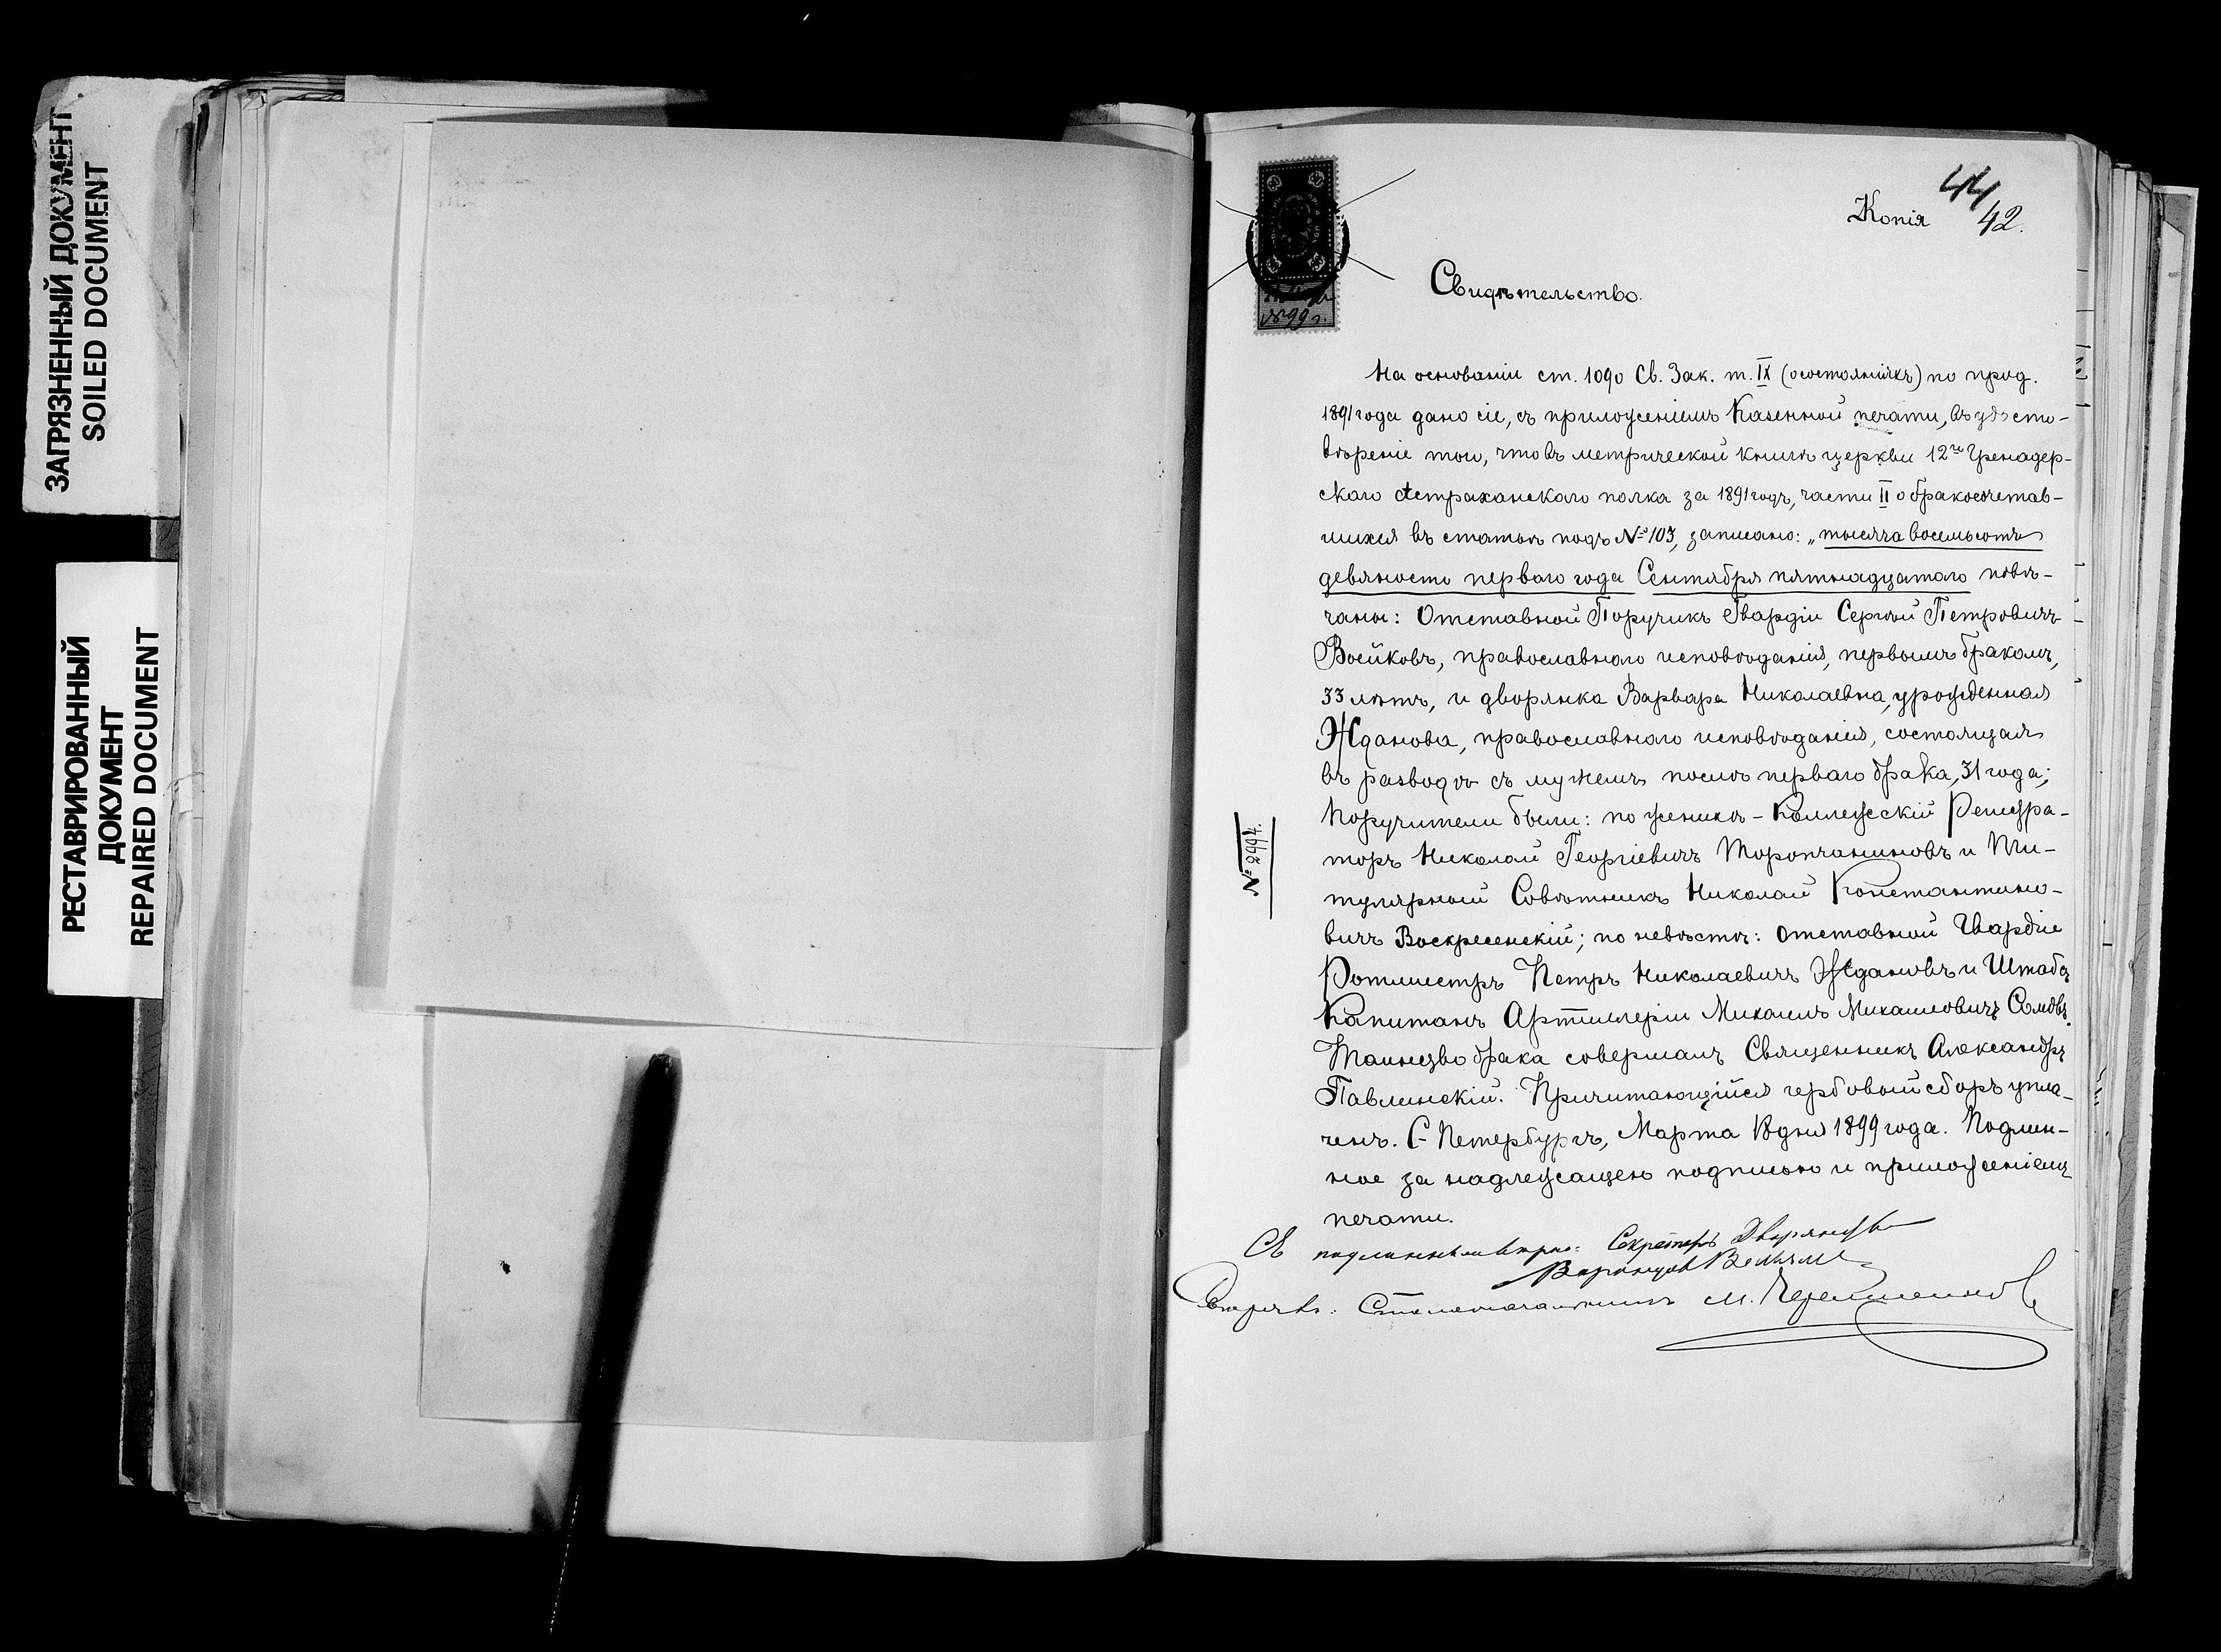 ЗАГРЯЗНЕННЫЙ ДОКУМЕНТ
SOILED DOCUMENT
РЕСТАВРИРОВАННЫЙ
ДОКУМЕНТ
REPAIRED DOCUMENT
44
Копія 42.
Свидѣтельство.
На основаніи ст. 1090 Св. Зак. т. IX (о состояніяхъ) по прод.
1891 года дано сіе, съ приложеніемъ Казенной печати, въ удосто-
вѣреніе того, что въ метрической книгѣ церкви 12го Гренадер-
скаго Астраханскаго полка за 1891 годъ, части II о бракосочетав-
шихся въ статьѣ подъ № 103, записано: „тысяча восемьсотъ
девяносто перваго года Сентября пятнадцатаго повѣ-
чаны: Отставной Поручикъ Гвардіи Сергѣй Петровичъ
Воейковъ, православнаго исповѣданія, первымъ бракомъ,
33 лѣтъ, и дворянка Варвара Николаевна, урожденная
Жданова, православнаго исповѣданія, состоящая
въ разводѣ съ мужемъ послѣ перваго брака, 31 года;
Поручители были: по женихѣ - Коллежскій Регистра-
торъ Николай Георгіевичъ Торопчаниновъ и Ти-
тулярный Совѣтникъ Николай Константино-
вичъ Воскресенскій; по невѣстѣ: отставной Гвардіи
Ротмистръ Петръ Николаевичъ Ждановъ и Штабъ
Капитанъ Артиллеріи Михаилъ Михаиловичъ
Таинство брака совершалъ Священникъ Александръ
Павлинскій. Причитающійся гербовый сборъ упла-
ченъ. С-Петербургъ, Марта дня 1899 года. Подлин-
ное за надлежащею подписью и приложеніемъ
печати.
№ 2994.
Съ подлиннымъ вѣрно: Секретарь Дворянства
Воронцовъ Вельяминовъ
Свѣрялъ: Столоначальникъ М.